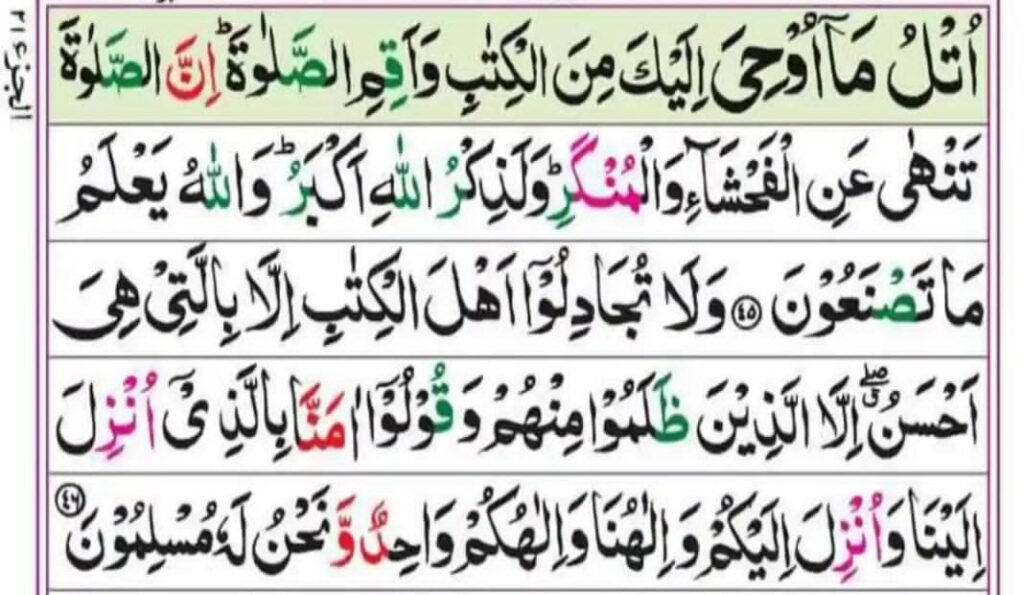 اُتْلُ مَاۤ اُوْحِیَ اِلَیْكَ مِنَ الْكِتٰبِ وَاَقِمِ الصَّلٰوةَ ؕ اِنَّ الصَّلٰوةَ
تَنْهٰی عَنِ الْفَحْشَآءِ وَالْمُنْكَرِ ؕ وَلَذِكْرُ اللّٰهِ اَكْبَرُ ؕ وَاللّٰهُ یَعْلَمُ
مَا تَصْنَعُوْنَ ﴿۴۵﴾ وَلَا تُجَادِلُوْۤا اَهْلَ الْكِتٰبِ اِلَّا بِالَّتِیْ هِیَ
اَحْسَنُ ۖۗ اِلَّا الَّذِیْنَ ظَلَمُوْا مِنْهُمْ وَقُوْلُوْۤا اٰمَنَّا بِالَّذِیْۤ اُنْزِلَ
اِلَیْنَا وَاُنْزِلَ اِلَیْكُمْ وَاِلٰهُنَا وَاِلٰهُكُمْ وَاحِدٌ وَّنَحْنُ لَهٗ مُسْلِمُوْنَ ﴿۴۶﴾
الجزء ۲۱